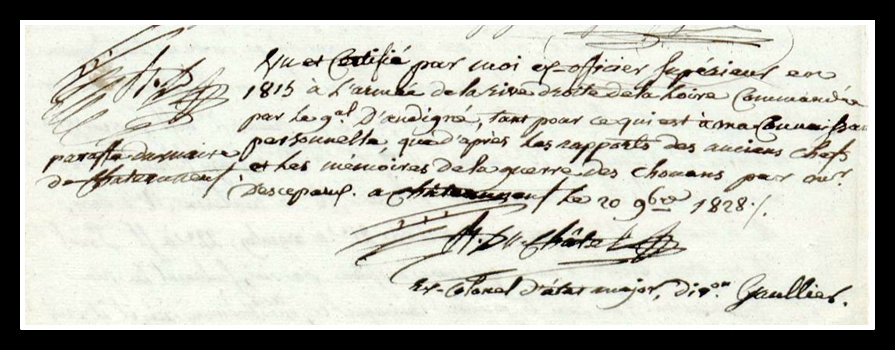 Vu et Certifié par moi ex-officier Supérieur en
1815 à L'armée de la rive droite de la Loire Commandée
par Le g.al D'andigné, tant pour ce qui est à ma Connaissan
personnelle, que d'après les rapports des anciens chefs
et Les mémoires de la guerre des chouans par mr.
Descepeaux. a Châteauneuf Le 20 9bre 1828 ./.
paraffe du maire
de Châteauneuf
Du Châtel
Ex-Colonel d'état major, Divon Gaullier.